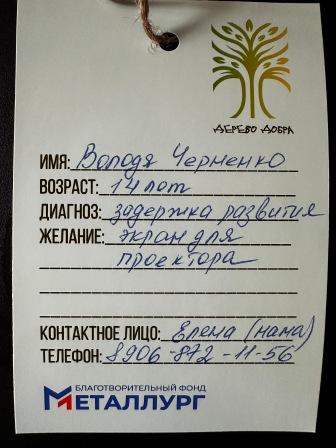 ДЕРЕВО ДОБРА
ИМЯ: Володя Черненко
ВОЗРАСТ: 14 лет
ДИАГНОЗ: задержка развития
ЖЕЛАНИЕ: экран для
проектора
КОНТАКТНОЕ ЛИЦО: Елена (мама)
ТЕЛЕФОН: 8906-872-11-56
БЛАГОТВОРИТЕЛЬНЫЙ ФОНД
МЕТАЛЛУРГ